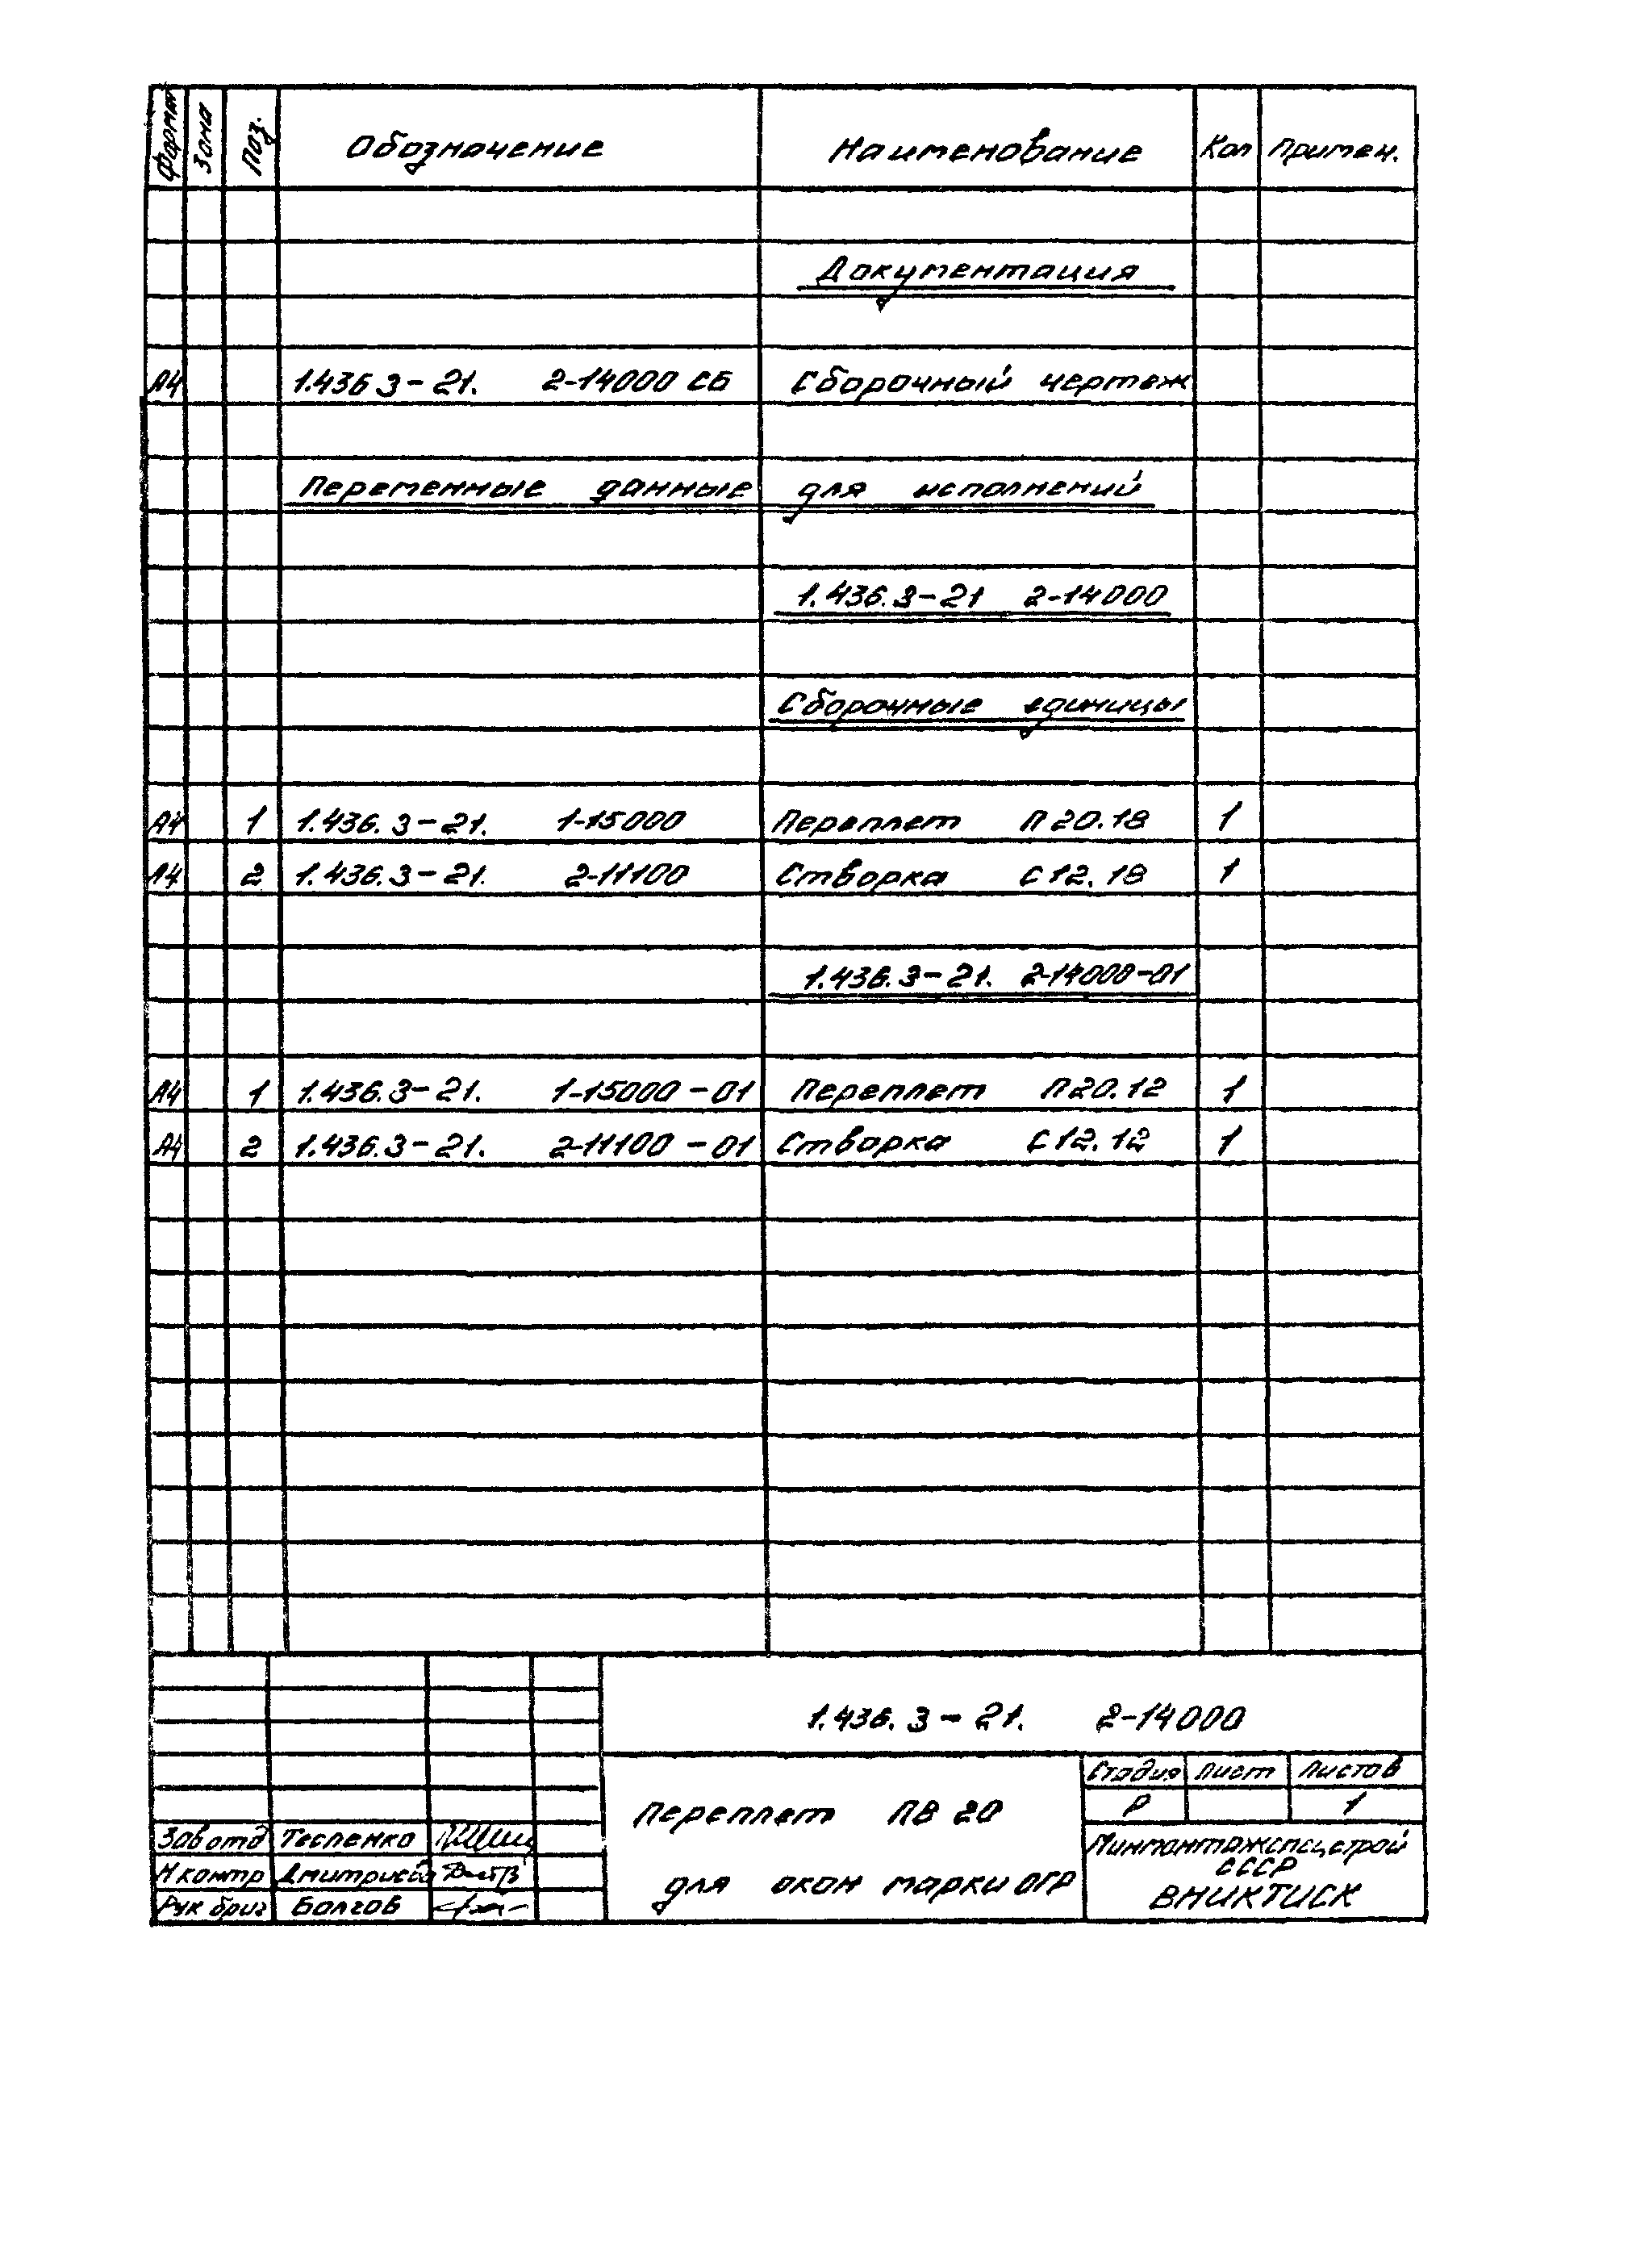 Формат Зона Поз. Обозначение Наименование Кол Примеч.
Документация
А4 1.436 3-21. 2-14000 СБ Сборочный чертеж
Переменные данные для исполнений
1.436.3-21 2-14000
Сборочные единицы
А4 1 1.436.3-21. 1-15000 Переплет П 20.18 1
А4 2 1.436.3-21. 2-11100 Створка С 12.18 1
1.436.3-21. 2-14000-01
А4 1 1.436.3-21. 1-15000-01 Переплет П 20.12 1
А4 2 1.436.3-21. 2-11100-01 Створка С 12.12 1
1.436.3-21. 2-14000
Стадия Лист Листов
Переплет ПВ 20
Р 1
для окон марки ОГР
Зав отд Тесленко
Минмонтажспецстрой
СССР
Н контр Дмитриева
ВНИКТИСК
Рук бриг Болгов